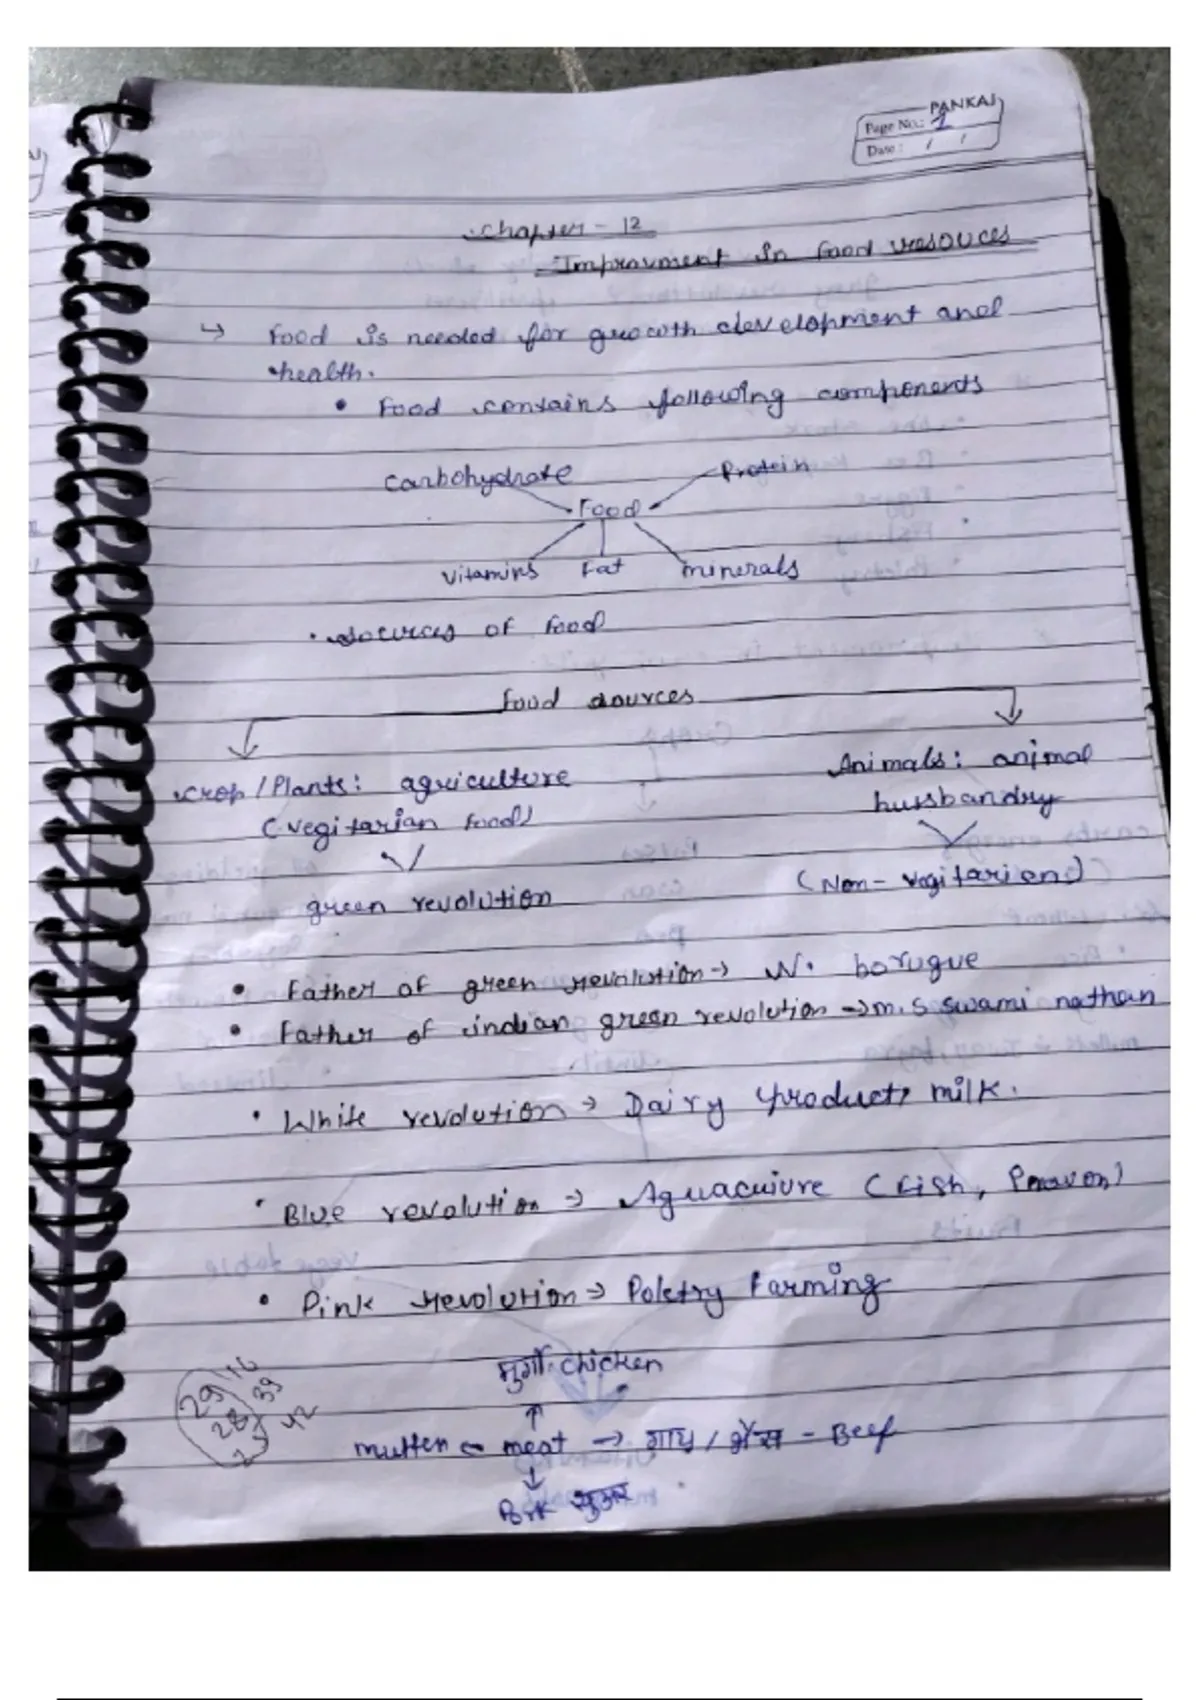 PANKAJ
Page No.: 1
Date: / /
Chapter - 12
Impravment in food resouces
↳ Food is needed for growth development and
health.
• Food contains following components
Carbohydrate Protein
Food
Vitamins Fat minerals
• sources of food
food sources
crop / Plants: agriculture Animals: animal
(vegitarian food) husbandry
green revolution (Non-vegitarian)
• Father of green revolution → N. borugue
• Father of indian green revolution → m.s swami nathan
• White revolution → Dairy product, milk.
• Blue revolution → Aquacuivre (Fish, Prawon)
• Pink revolution → Poletry Farming
मुर्गी chicken
↑
mutten ← meat → गाय / भैंस - Beef
↓
Pork सुअर
29 16
28 39
42